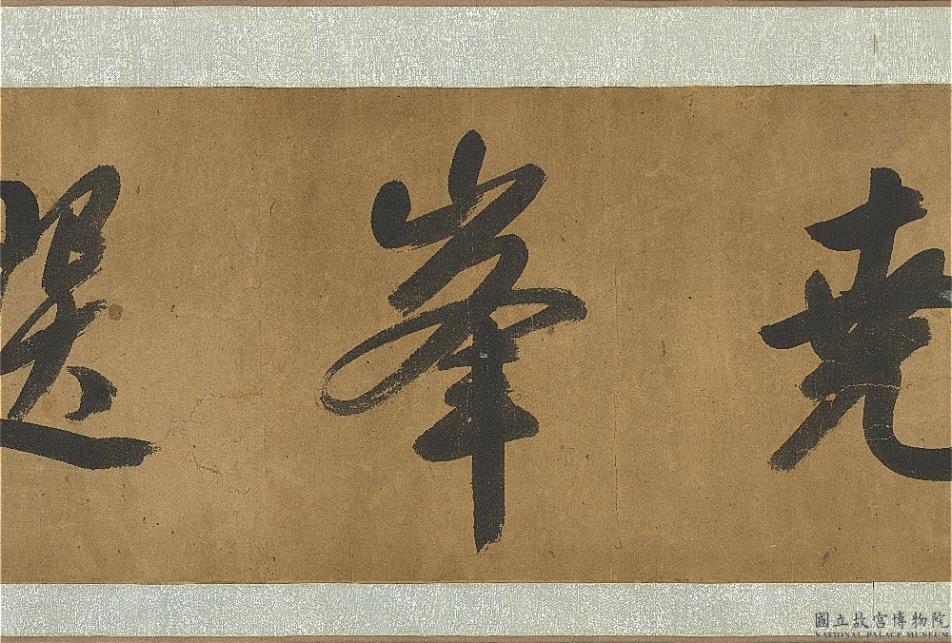 堯峯
國立故宮博物院
NATIONAL PALACE MUSEUM